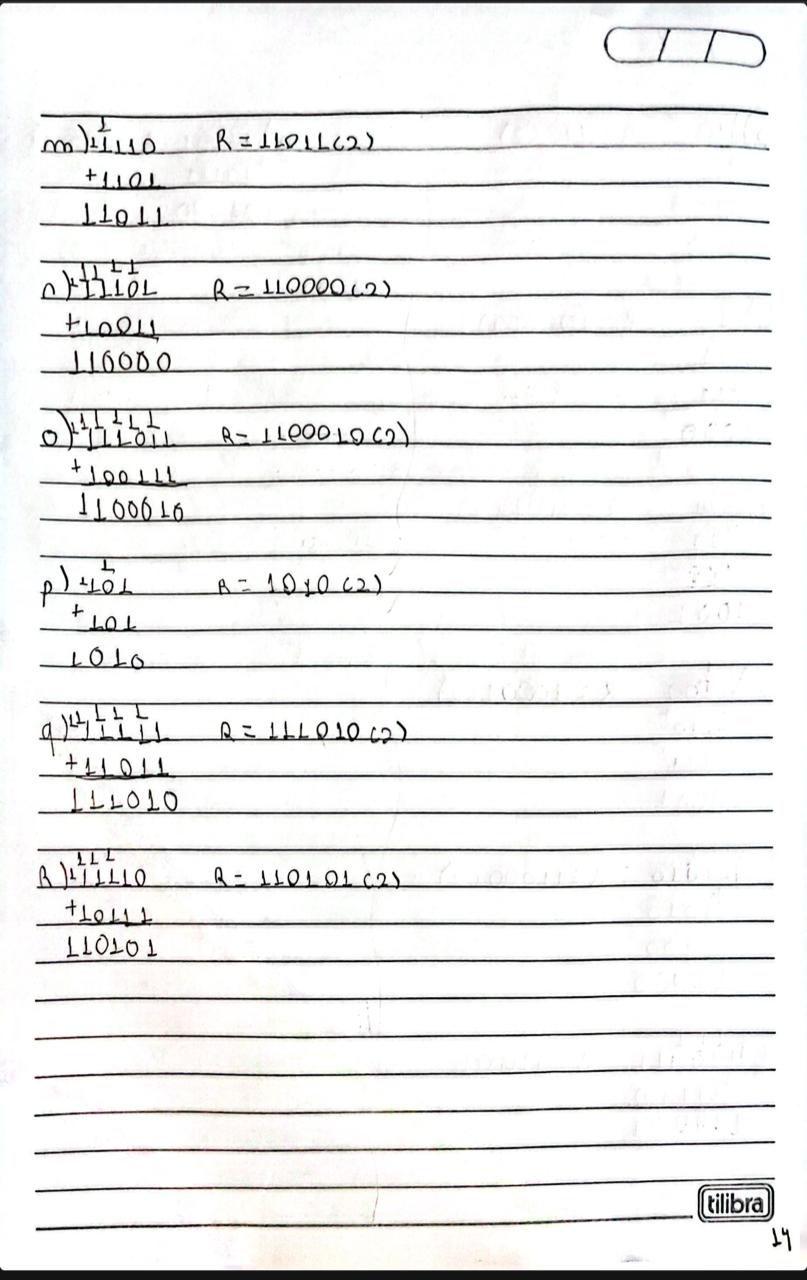 1
m) 11110 R = 11011(2)
+1101
11011
11 11
n) 11101 R = 110000(2)
+10011
110000
11111
o) 111011 R = 1100010(2)
+100111
1100010
1
p) 101 R = 1010(2)
+101
1010
11111
q) 11111 R = 111010(2)
+11011
111010
111
R) 11110 R = 110101(2)
+10111
110101
tilibra
14